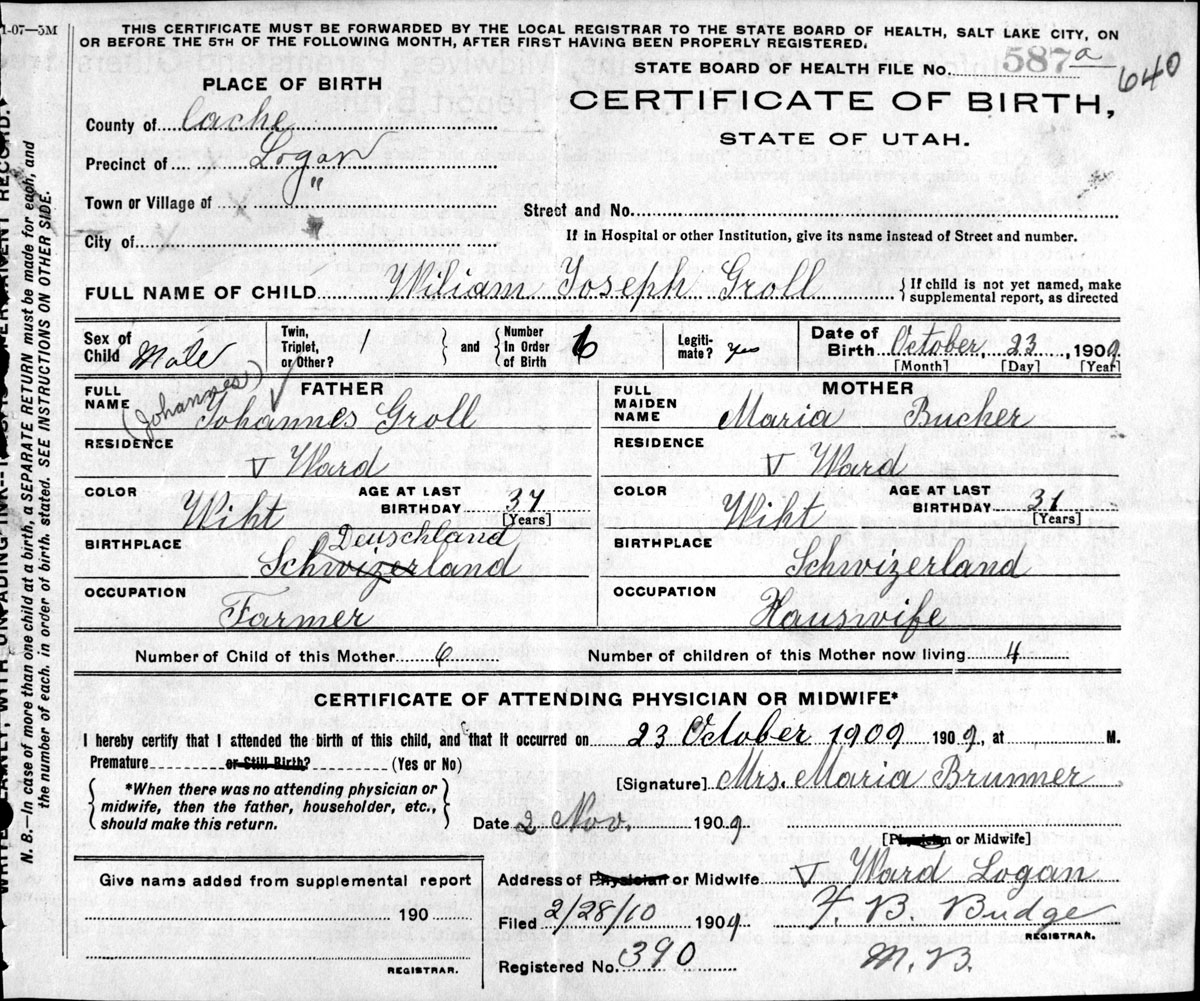 1-07—5M
THIS CERTIFICATE MUST BE FORWARDED BY THE LOCAL REGISTRAR TO THE STATE BOARD OF HEALTH, SALT LAKE CITY, ON
OR BEFORE THE 5TH OF THE FOLLOWING MONTH, AFTER FIRST HAVING BEEN PROPERLY REGISTERED.
STATE BOARD OF HEALTH FILE No. 587 a
640
PLACE OF BIRTH
CERTIFICATE OF BIRTH,
STATE OF UTAH.
County of Cache
Precinct of Logan
Town or Village of "
Street and No.
City of
If in Hospital or other Institution, give its name instead of Street and number.
FULL NAME OF CHILD Wiliam Joseph Groll { If child is not yet named, make
supplemental report, as directed
Sex of Child Male Twin, Triplet, or Other? 1 } and { Number In Order of Birth 6 Legiti- mate? Date of Birth October, 23, 1909.
[Month] [Day] [Year]
FATHER
FULL NAME (Johannes) Johannes Groll
MOTHER
FULL MAIDEN NAME Maria Bucher
RESIDENCE V Ward
RESIDENCE V Ward
COLOR Wiht AGE AT LAST BIRTHDAY 37 [Years]
COLOR Wiht AGE AT LAST BIRTHDAY 31 [Years]
BIRTHPLACE Deuschland
Schwizerland
BIRTHPLACE Schwizerland
OCCUPATION Farmer
OCCUPATION Hauswife
Number of Child of this Mother 6 Number of children of this Mother now living 4
CERTIFICATE OF ATTENDING PHYSICIAN OR MIDWIFE*
I hereby certify that I attended the birth of this child, and that it occurred on 23 October 1909 1909, at M.
Premature or Still Birth? (Yes or No)
[Signature] Mrs. Maria Brunner
{ *When there was no attending physician or
midwife, then the father, householder, etc.,
should make this return. }
Date 2 Nov. 1909
[Physician or Midwife]
Give name added from supplemental report
190
REGISTRAR.
Address of Physician or Midwife V Ward Logan
Filed 2/28/10 1909 B. Budge
REGISTRAR.
Registered No. 390 M.B.
N. B.—In case of more than one child at a birth, a SEPARATE RETURN must be made for each, and
the number of each, in order of birth, stated. SEE INSTRUCTIONS ON OTHER SIDE.